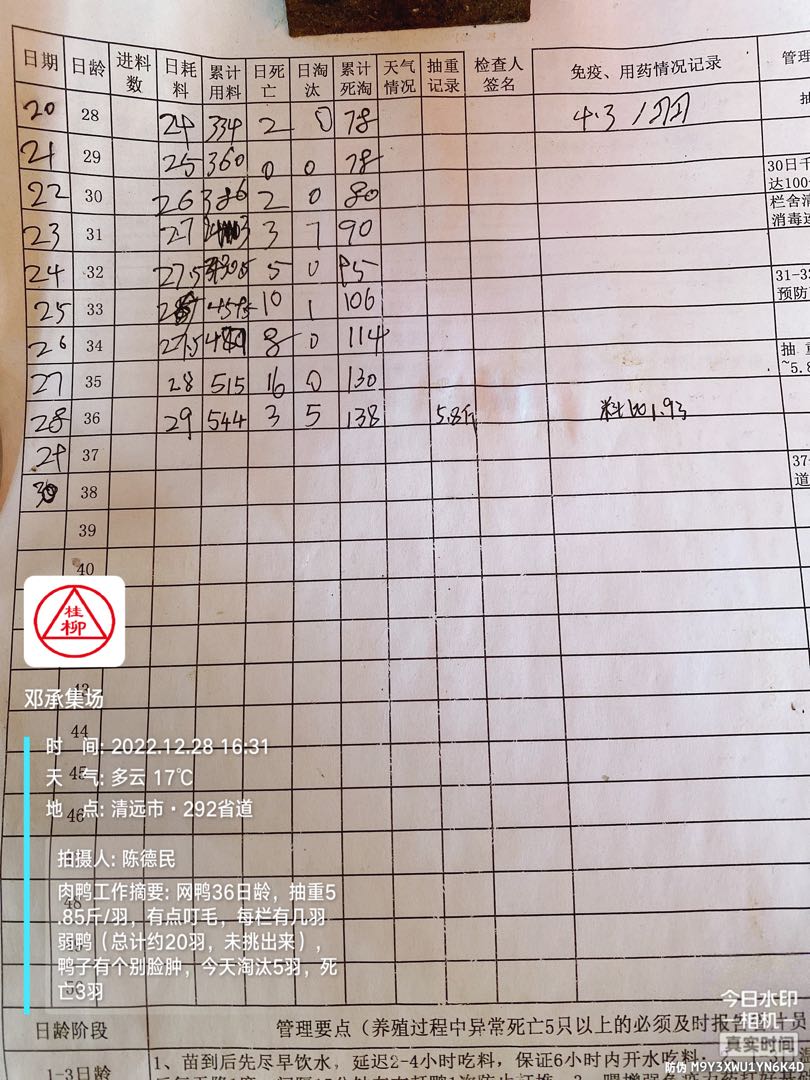 日期 日龄 进料数 日耗料 累计用料 日死亡 日淘汰 累计死淘 天气情况 抽重记录 检查人签名 免疫、用药情况记录 管理
20 28 24 334 2 0 78 4.3
21 29 25 360 0 0 78
30日千
达100
22 30 26 386 2 0 80
栏舍清
消毒运
23 31 27 3 7 90
24 32 27.5 5 0 95
31-33
预防
25 33 10 1 106
26 34 27.5 8 0 114
抽 重
~5.8
27 35 28 515 16 0 130
28 36 29 544 3 5 138 5.8斤 料比1.93
29 37
37-
道
30 38
39
40
桂
柳
43
邓承集场
44
时 间: 2022.12.28 16:31
天 气: 多云 17℃
45
地 点: 清远市·292省道
46
拍摄人: 陈德民
肉鸭工作摘要: 网鸭36日龄，抽重5
.85斤/羽，有点叮毛，每栏有几羽
48
弱鸭（总计约20羽，未挑出来），
鸭子有个别脸肿，今天淘汰5羽，死
亡3羽
50
今日水印
相机
真实时间
日龄阶段 管理要点（养殖过程中异常死亡5只以上的必须及时报告
防伪 M9Y3XWU1YN6K4D
1-3日龄 1、苗到后先尽早饮水，延迟2-4小时吃料，保证6小时内开水吃料；